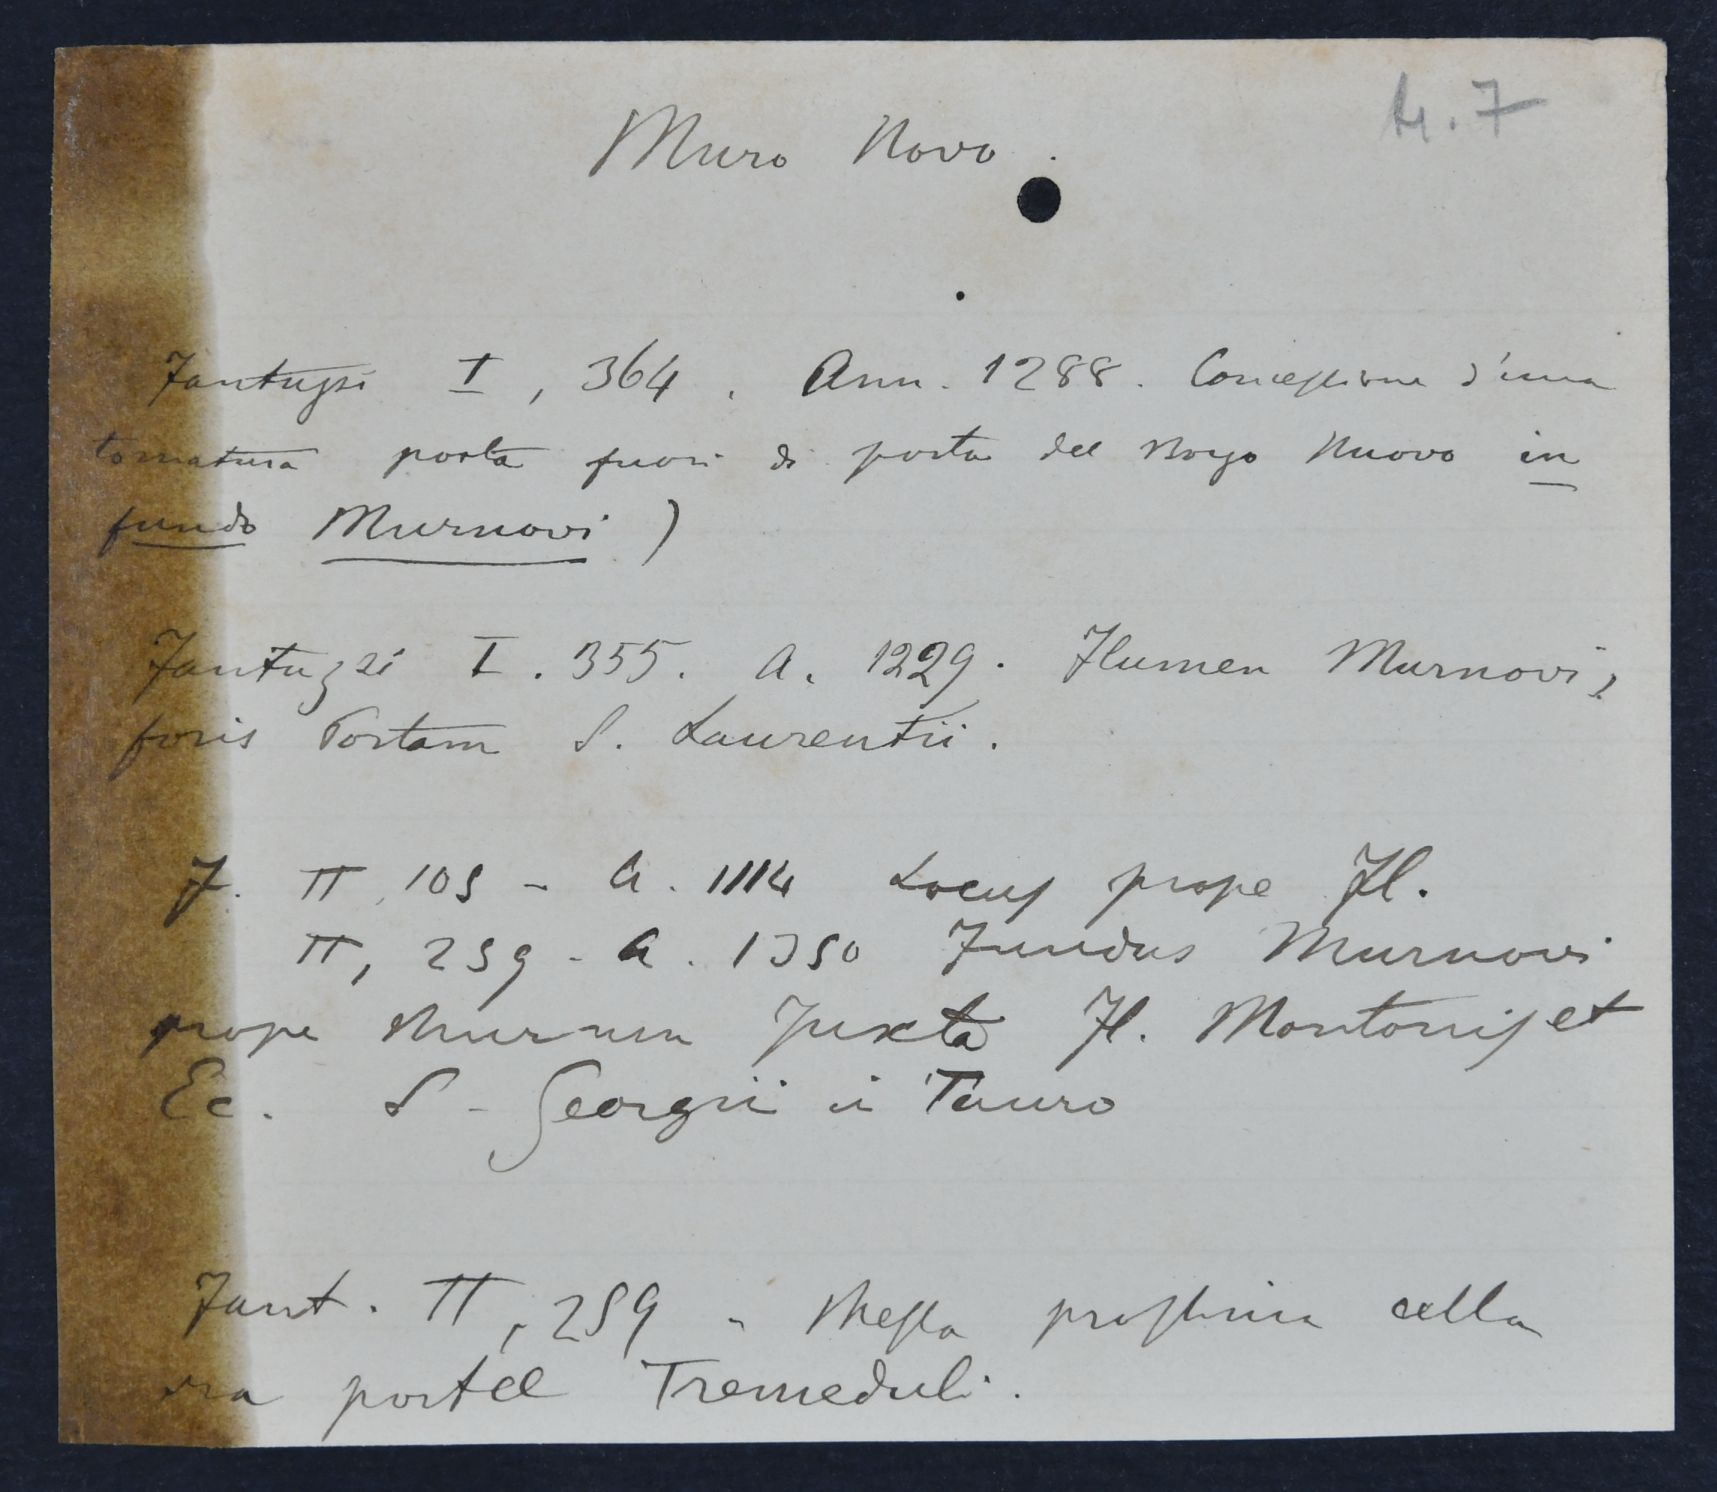 M. 7
Muro Novo.
Fantuzzi I, 364. Ann. 1288. Concessione d'una
tornatura posta fuori di porta del Borgo Nuovo in
fundo Murnovi)
Fantuzzi I. 355. A. 1229. Flumen Murnovi,
foris Portam S. Laurentii.
F. II, 105 - A. 1114 Locus prope Fl.
II, 259 - A. 1350 Fundus Murnovi
prope Murum juxta Fl. Montonis et
Ec. S. Georgii in Tauro
Fant. II, 259 - cella
portel Tremeduli.